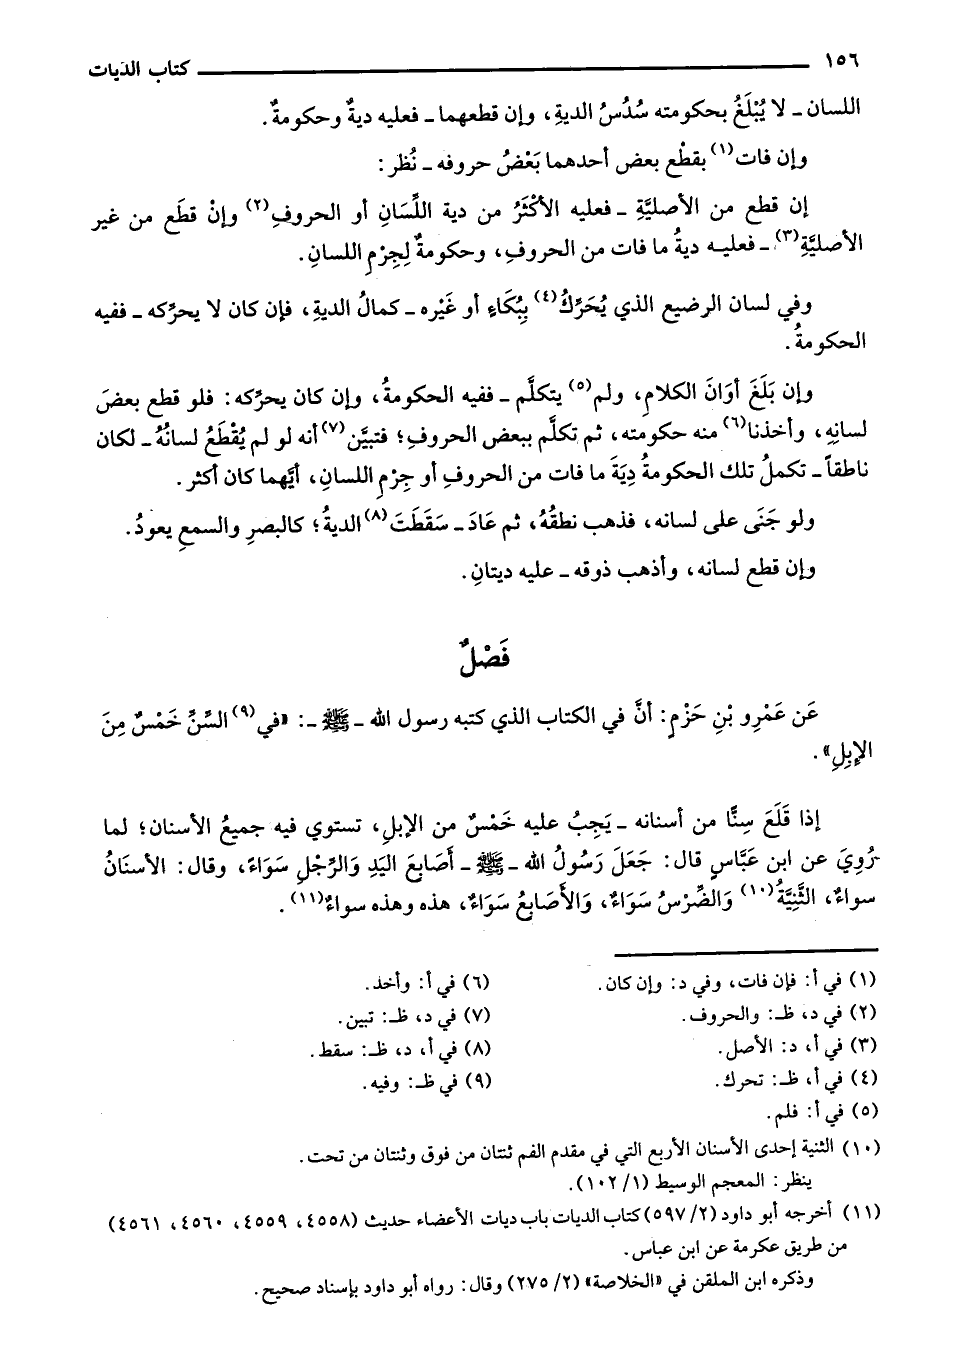 ١٥٦ كتاب الديات
اللسان ـ لا يُبْلَغُ بحكومته سُدُسُ الديةِ، وإن قطعهما ـ فعليه ديةٌ وحكومةٌ.
وإن فات(١) بقطْع بعض أحدهما بَعْضُ حروفه ـ نُظر:
إن قطع من الأصليَّةِ ـ فعليه الأكْثَرُ من دية اللِّسَانِ أو الحروفِ(٢) وإنْ قطَع من غير
الأصليَّةِ(٣) ـ فعليـه ديةُ ما فات من الحروفِ، وحكومةٌ لِجِرْمِ اللسانِ.
وفي لسان الرضيع الذي يُحَرِّكُ(٤) بِبُكَاءٍ أو غَيْره ـ كمالُ الديةِ، فإن كان لا يحرِّكه ـ ففيه
الحكومةُ.
وإن بَلَغَ أوَانَ الكلامِ، ولم(٥) يتكلَّم ـ ففيه الحكومةُ، وإن كان يحركه: فلو قطع بعضَ
لسانِهِ، وأخذنا(٦) منه حكومته، ثم تكلَّم ببعض الحروفِ؛ فتبيَّن(٧) أنه لو لم يُقْطَعُ لسانُهُ ـ لكان
ناطقاً ـ تكملُ تلك الحكومةُ دِيَةَ ما فات من الحروفِ أو جِرْمِ اللسانِ، أيَّهما كان أكثر.
ولو جَنَى على لسانه، فذهب نطقُهُ، ثم عَادَ ـ سَقَطَتَ(٨) الديةُ؛ كالبصرِ والسمعِ يعودُ.
وإن قطع لسانه، وأذهب ذوقه ـ عليه ديتانِ.
فَصْلٌ
عَن عَمْرِو بْنِ حَزْمٍ: أنَّ في الكتاب الذي كتبه رسول الله ـ ﷺ ـ: «في(٩) السِّنِّ خَمْسٌ مِنَ
الإبِلِ».
إذا قَلَعَ سِنًّا من أسنانه ـ يَجِبُ عليه خَمْسٌ من الإبلِ، تستوي فيه جميعُ الأسنان؛ لما
رُوِيَ عن ابن عَبَّاسٍ قال: جَعَلَ رَسُولُ الله ـ ﷺ ـ أَصَابِعَ اليَدِ وَالرِّجْلِ سَوَاءً، وقال: الأسنَانُ
سواءٌ، الثَّنِيَّةُ(١٠) وَالضِّرْسُ سَوَاءٌ، وَالأَصَابِعُ سَوَاءٌ، هذه وهذه سواءٌ(١١).
(١) في أ: فإن فات، وفي د: وإن كان.
(٢) في د، ظـ: والحروف.
(٣) في أ، د: الأصل.
(٤) في أ، ظـ: تحرك.
(٥) في أ: فلم.
(٦) في أ: وأخذ.
(٧) في د، ظـ: تبين.
(٨) في أ، د، ظـ: سقط.
(٩) في ظـ: وفيه.
(١٠) الثنية إحدى الأسنان الأربع التي في مقدم الفم ثنتان من فوق وثنتان من تحت.
ينظر: المعجم الوسيط (١/ ١٠٢).
(١١) أخرجه أبو داود (٢/ ٥٩٧) كتاب الديات باب ديات الأعضاء حديث (٤٥٥٨، ٤٥٥٩، ٤٥٦٠، ٤٥٦١)
من طريق عكرمة عن ابن عباس.
وذكره ابن الملقن في «الخلاصة» (٢/ ٢٧٥) وقال: رواه أبو داود بإسناد صحيح.